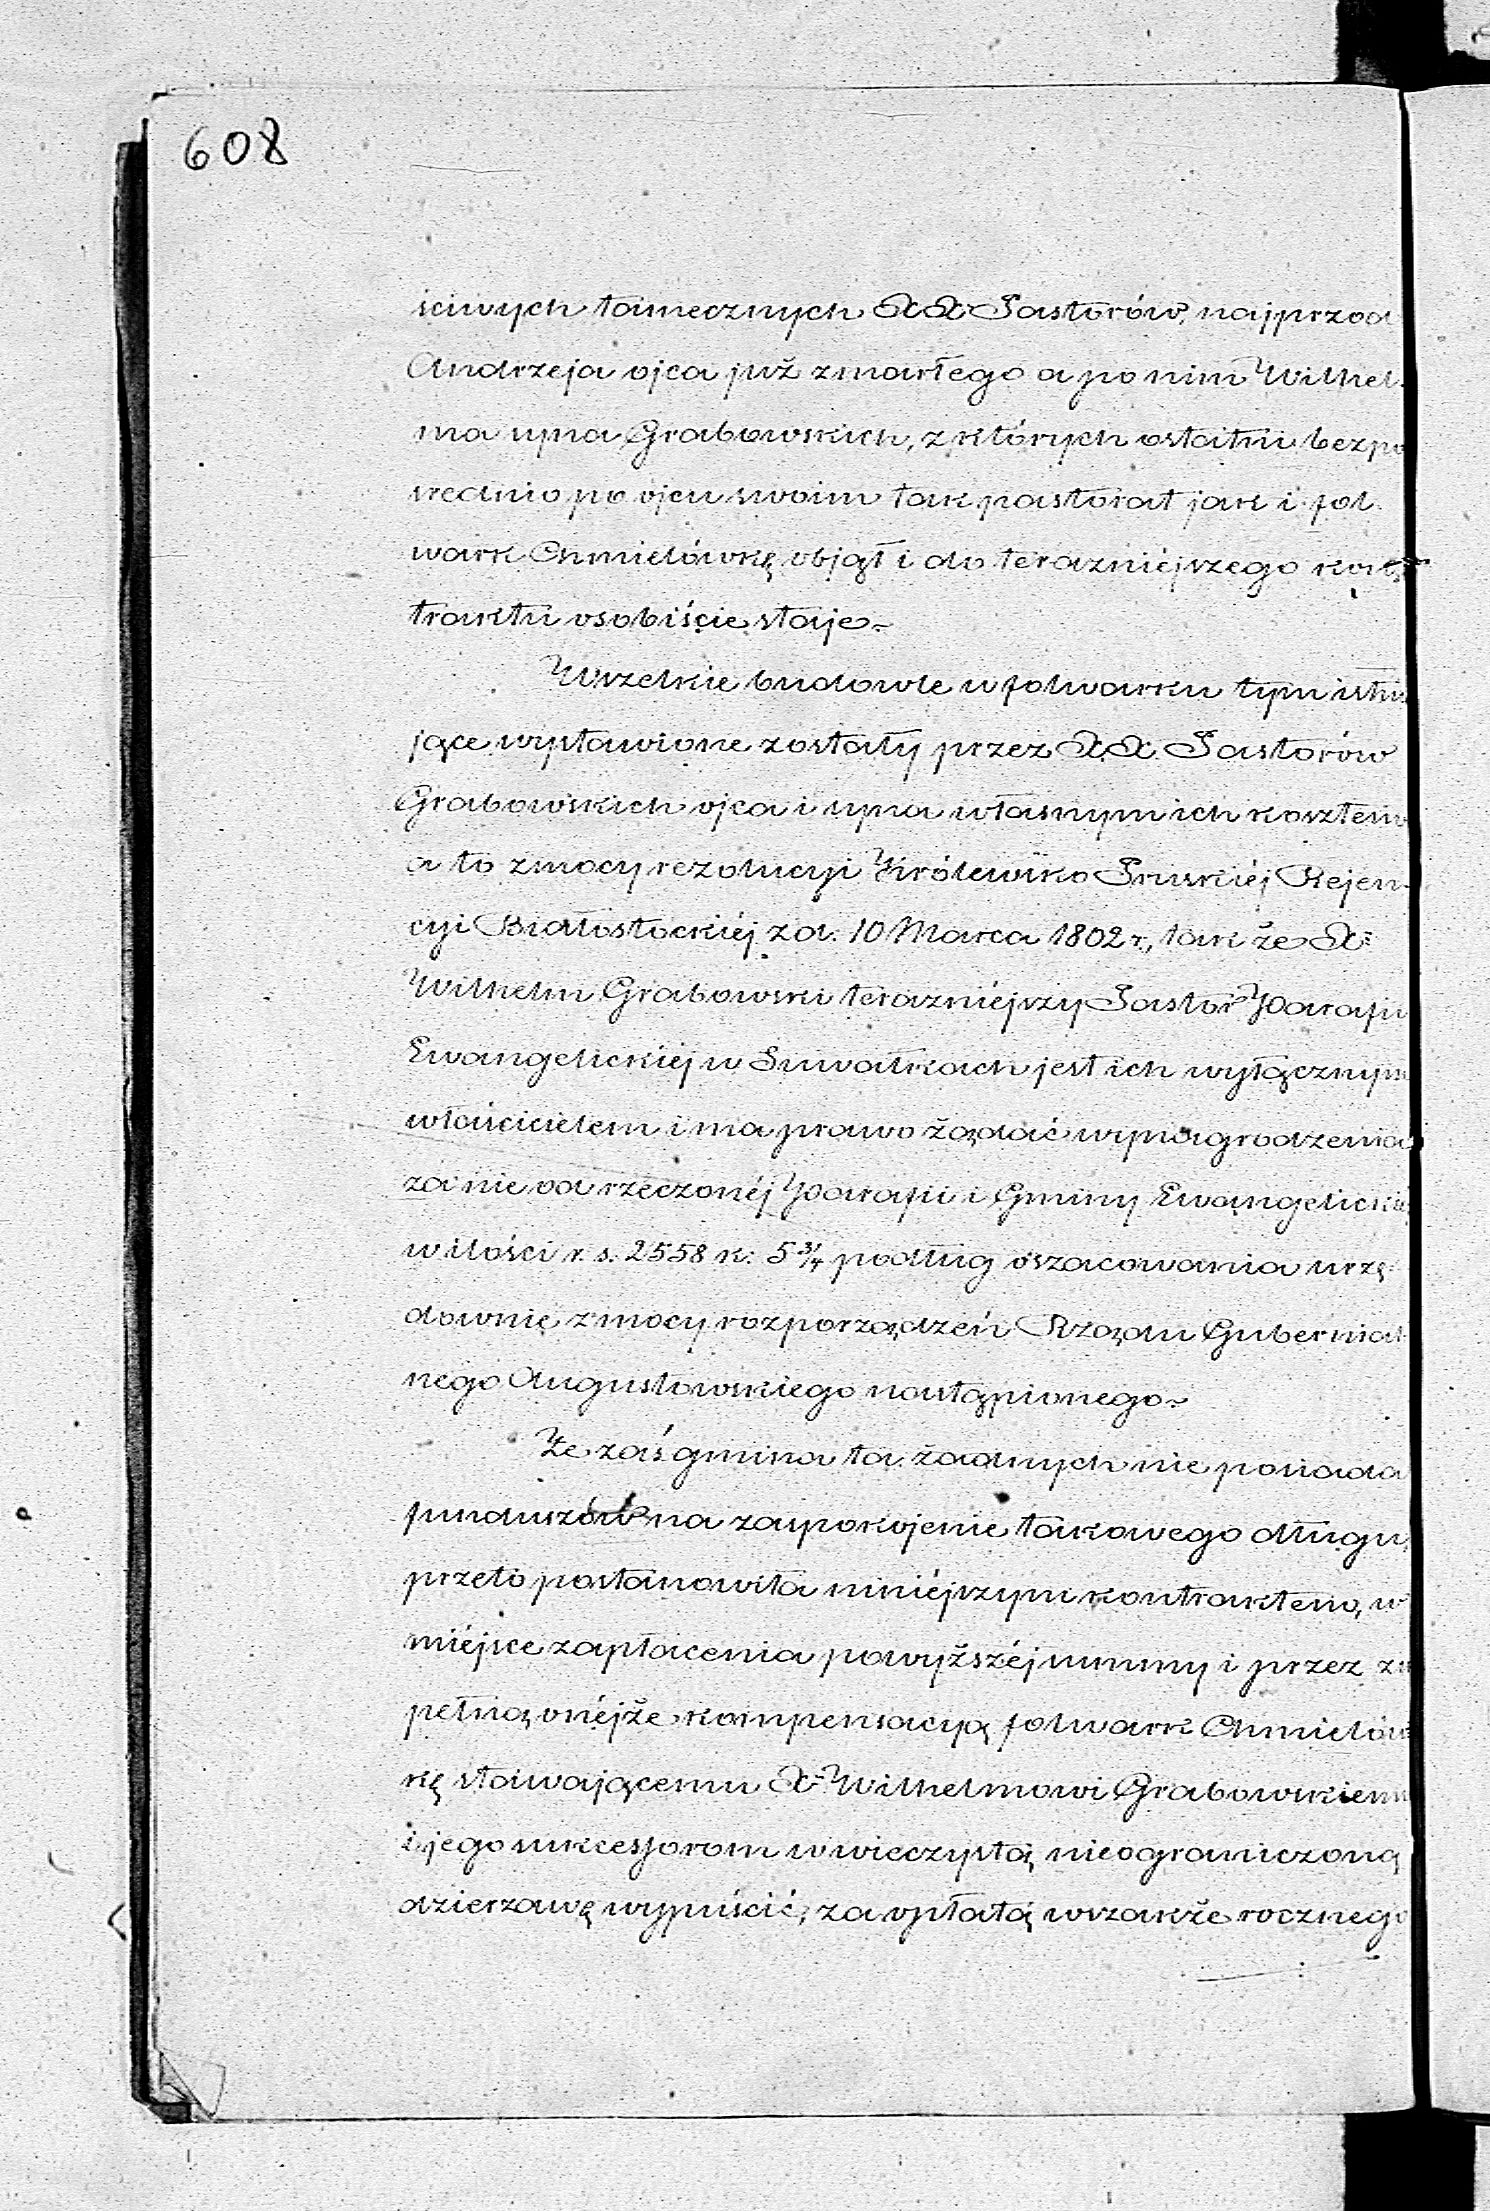 608
ściwych tamecznych XX Pastorów, najprzod
Andrzeja ojca już zmarłego a po nim Wilhel-
ma syna Grabowskich, z których ostatni bezpo
srednio po ojcu swoim tak pastorat jak i fol-
wark Chmielówkę objął i do teraźniéjszego kon
traktu osobiście staje.
Wszelkie budowle w folwarku tym istnie
jące wystawione zostały przez XX. Pastorów
Grabowskich ojca i syna własnym ich kosztem
a to z mocy rezolucyi Królewsko Pruskiéj Rejen-
cyi Białostockiéj z d. 10 Marca 1802 r., tak że X.
Wilhelm Grabowski teraźniéjszy Pastor Parafii
Ewangelickiéj w Suwałkach jest ich wyłącznym
właścicielem i ma prawo żądać wynagrodzenia
za nie od rzeczonéj Parafii i Gminy Ewangelickiéj
w ilości r. s. 2558 k: 5 3/4 podług oszacowania urzę-
downie z mocy rozporządzeń Rządu Gubernial
nego Augustowskiego nastąpionego.
Że zaś gmina ta żadnych nie posiada
funduszów na zaspokojenie takowego długu,
przeto postanowiła niniéjszym kontraktem, w
miéjsce zapłacenia powyższéj summy i przez zu
pełną onéjże kompensacyą folwark Chmielów
kę stawającemu X. Wilhelmowi Grabowskiemu
i jego sukcessorom w wieczystą nieograniczoną
dzierzawę wypuścić, za opłatą wszakże rocznego